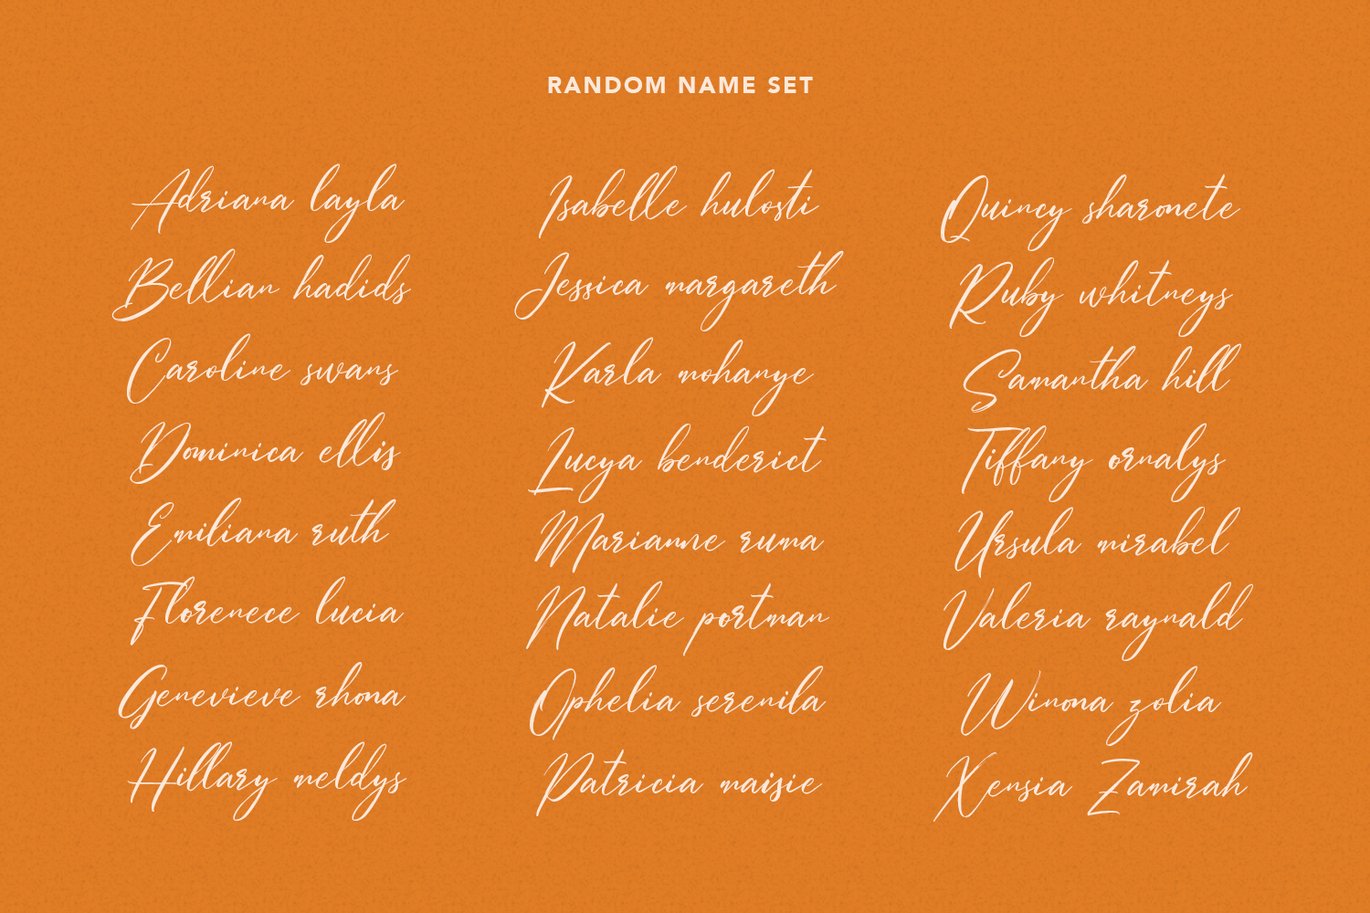 RANDOM NAME SET
Adriana layla
Bellian hadids
Caroline swans
Dominica ellis
Emiliana ruth
Florenece lucia
Genevieve rhona
Hillary meldys
Isabelle hulosti
Jessica margareth
Karla mohanye
Lucya benderict
Marianne ruma
Natalie portman
Ophelia serenila
Patricia maisie
Quincy sharonete
Ruby whitneys
Samantha hill
Tiffany ornalys
Ursula mirabel
Valeria raynald
Winona zolia
Xensia Zamirah